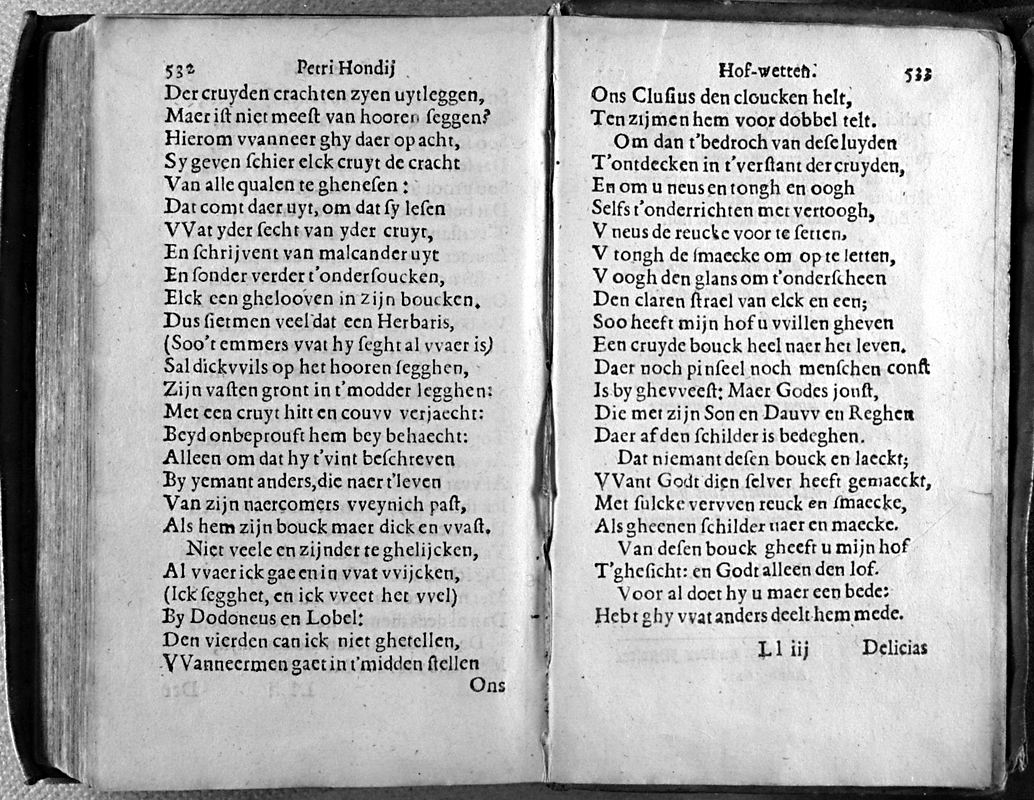 532 Petri Hondij
Der cruyden crachten zyen uytleggen,
Maer iſt niet meeſt van hooren ſeggen?
Hierom vvanneer ghy daer op acht,
Sy geven ſchier elck cruyt de cracht
Van alle qualen te gheneſen :
Dat comt daer uyt, om dat ſy leſen
VVat yder ſecht van yder cruyt,
En ſchrijvent van malcander uyt
En ſonder verder t'onderſoucken,
Elck een ghelooven in zijn boucken.
Dus ſietmen veel dat een Herbaris,
(Soo't emmers vvat hy ſeght al vvaer is)
Sal dickvvils op het hooren ſegghen,
Zijn vaſten gront in t'modder legghen:
Met een cruyt hitt en couvv verjaecht:
Beyd onbeprouft hem bey behaecht:
Alleen om dat hy t'vint beſchreven
By yemant anders, die naer t'leven
Van zijn naercomers vveynich paſt,
Als hem zijn bouck maer dick en vvaſt.
Niet veele en zijnder te ghelijcken,
Al vvaer ick gae en in vvat vvijcken,
(Ick ſegghet, en ick vveet het vvel)
By Dodoneus en Lobel:
Den vierden can ick niet ghetellen,
VVanneermen gaet in t'midden ſtellen
Ons
Hof-wetten. 533
Ons Cluſius den cloucken helt,
Ten zij men hem voor dobbel telt.
Om dan t'bedroch van deſe luyden
T'ontdecken in t'verſtant der cruyden,
En om u neus en tongh en oogh
Selfs t'onderrichten met vertoogh,
V neus de reucke voor te ſetten,
V tongh de ſmaecke om op te letten,
V oogh den glans om t'onderſcheen
Den claren ſtrael van elck en een;
Soo heeft mijn hof u vvillen gheven
Een cruyde bouck heel naer het leven.
Daer noch pinſeel noch menſchen conſt
Is by ghevveeſt: Maer Godes jonſt,
Die met zijn Son en Dauvv en Reghen
Daer af den ſchilder is bedeghen.
Dat niemant deſen bouck en laeckt;
VVant Godt dien ſelver heeft gemaeckt,
Met ſulcke vervven reuck en ſmaecke,
Als gheenen ſchilder naer en maecke.
Van deſen bouck gheeft u mijn hof
T'gheſicht: en Godt alleen den lof.
Voor al doet hy u maer een bede:
Hebt ghy vvat anders deelt hem mede.
Ll iij Delicias